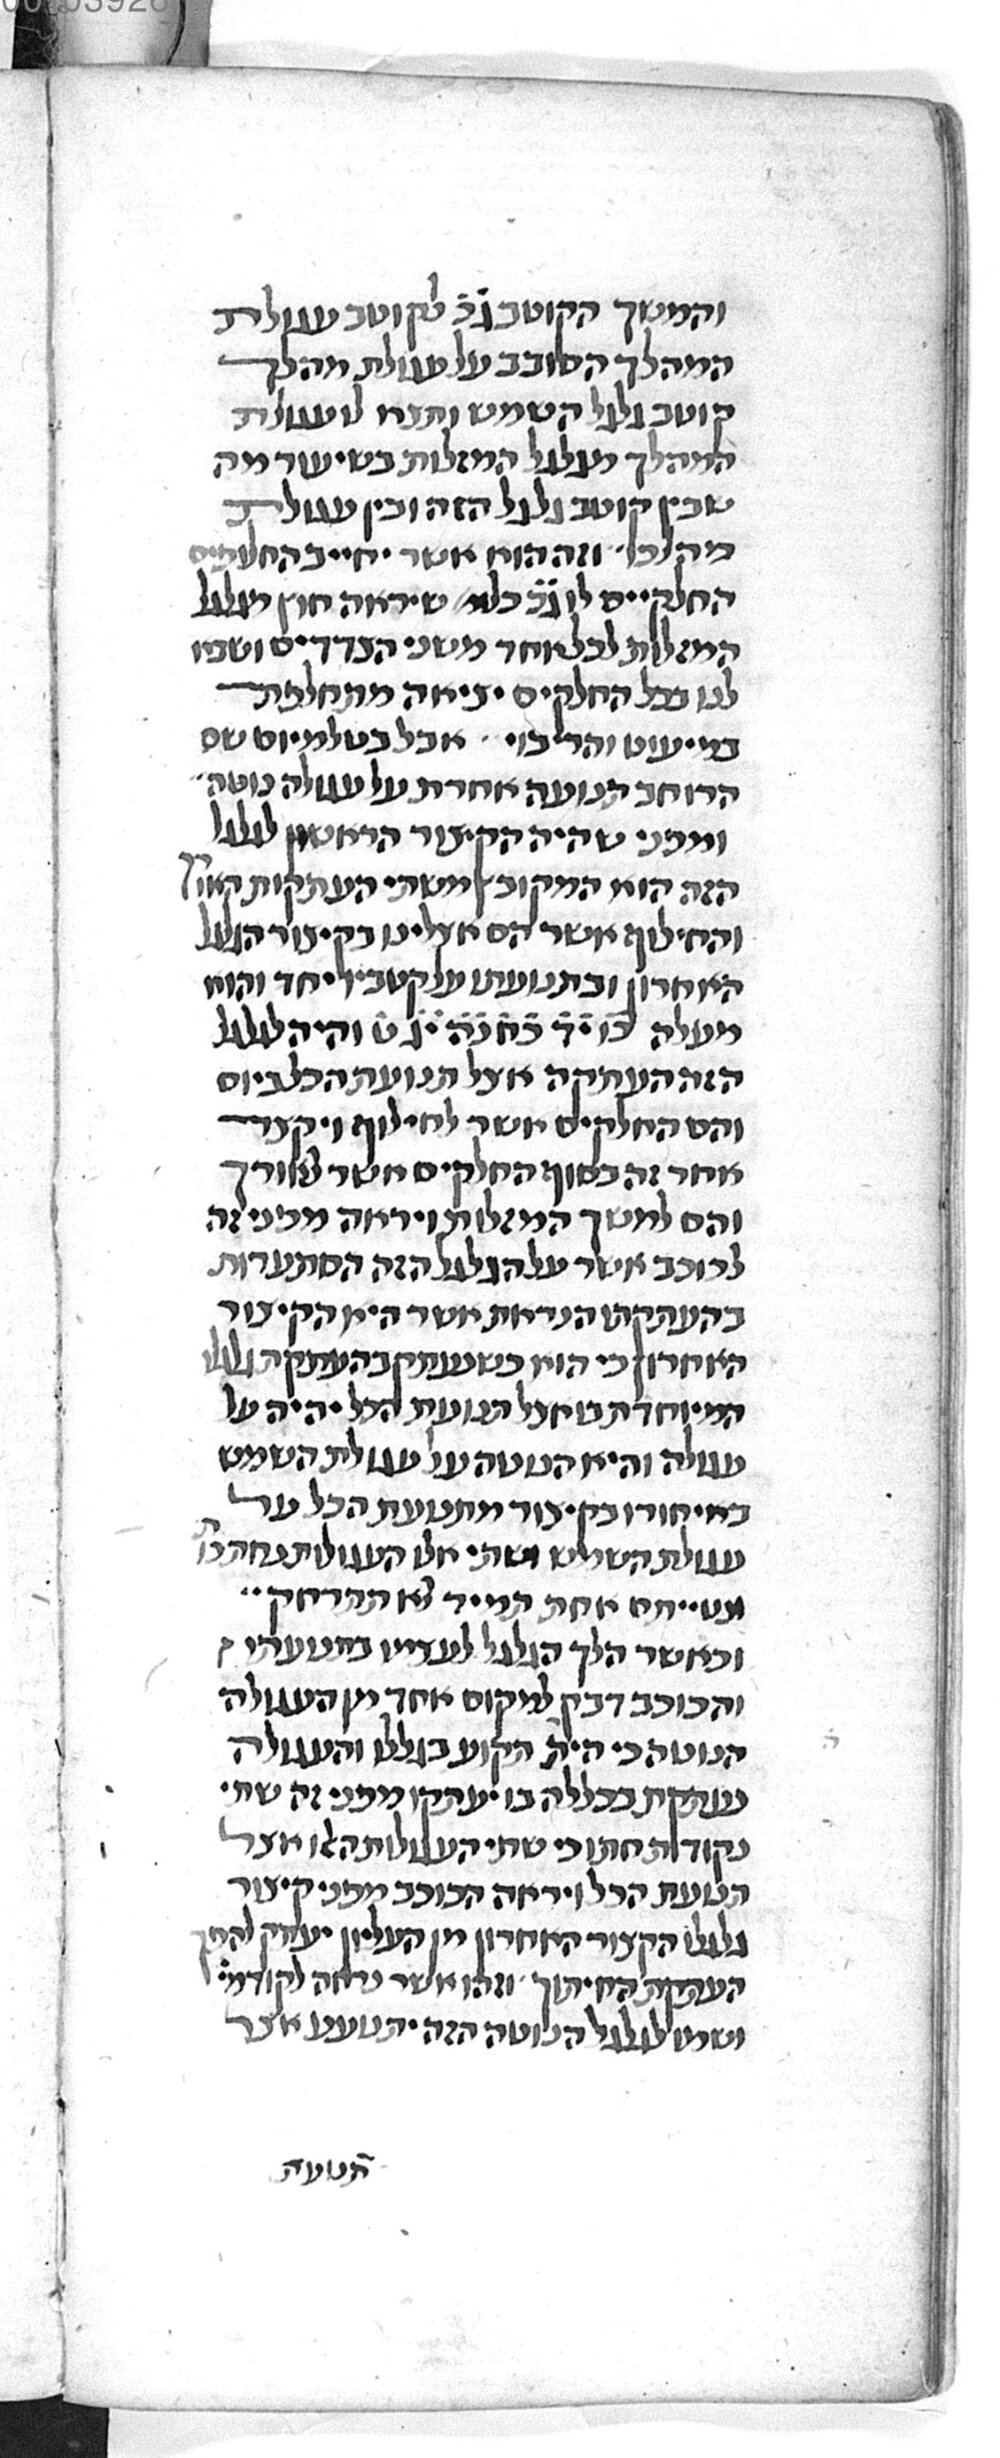 והמשך הקוטב ג̇כ̇ לקוטב עגולת
המהלך הסובב על עגולת מהלך
קוטב גלגל השמש ותצא לו עגולת
המהלך מגלגל המזלות בשיעור מה
שבין קוטב גלגל הזה ובין עגולת
מהלכו׳ וזה הוא אשר יחייב החלופים
החלקיים לו ג̇כ̇ כלו׳ שיראה חוץ מגלגל
המזלות לכל אחד משני הצדדים ושמו
לנו בכל החלקים יציאה מתחלפת
במיעוט והריבוי׳׳ אבל בטלמיוס שם
הרוחב תנועה אחרת על עגולה נוטה׳
ומפני שהיה הקיצור הראשון לגלגל
הזה הוא המקובץ משתי העתקות האורך
והחילוף אשר הם אצלינו בקיצור הגלגל
האחרון ובתנועתו על קטביו יחד והוא
מעלה והיה לגלגל
הזה העתקה אצל תנועת הכל ביום
והם החלקים אשר לחילוף ויקצר
אחר זה בסוף החלקים אשר לאורך
והם למשך המזלות ויראה מפני זה
לכוכב אשר על הגלגל הזה הסתערות
בהעתקתו הנראת אשר היא הקיצור
האחרון כי הוא כשנעתק בהעתקת גלגלו
המיוחדת בו אצל תנועת הכל יהיה על
עגולה והיא הנוטה על עגולת השמש
באיחורו בקיצור מתנועת הכל על
עגולת השמש ושתי אלו העגולות נחתכות
אחת תמיד לא תתרחק׳׳
וכאשר הלך הגלגל לעצמו בתנועתו
והכוכב דבק למקום אחד מן העגולה
הנוטה כי היה תקוע בגלגלו והעגולה
נעתקת בכללה בו יעתקו מפני זה שתי
נקודות חתוכי שתי העגולות האלו אצל
תנועת הכל ויראה הכוכב מפני קיצור
גלגלו הקצור האחרון מן העליון יעתק להפך
העתקת החיתוך׳ וזהו אשר נראה לקודמי׳
ושמו לגלגל הנוטה הזה יתנועע אצל
תנועת